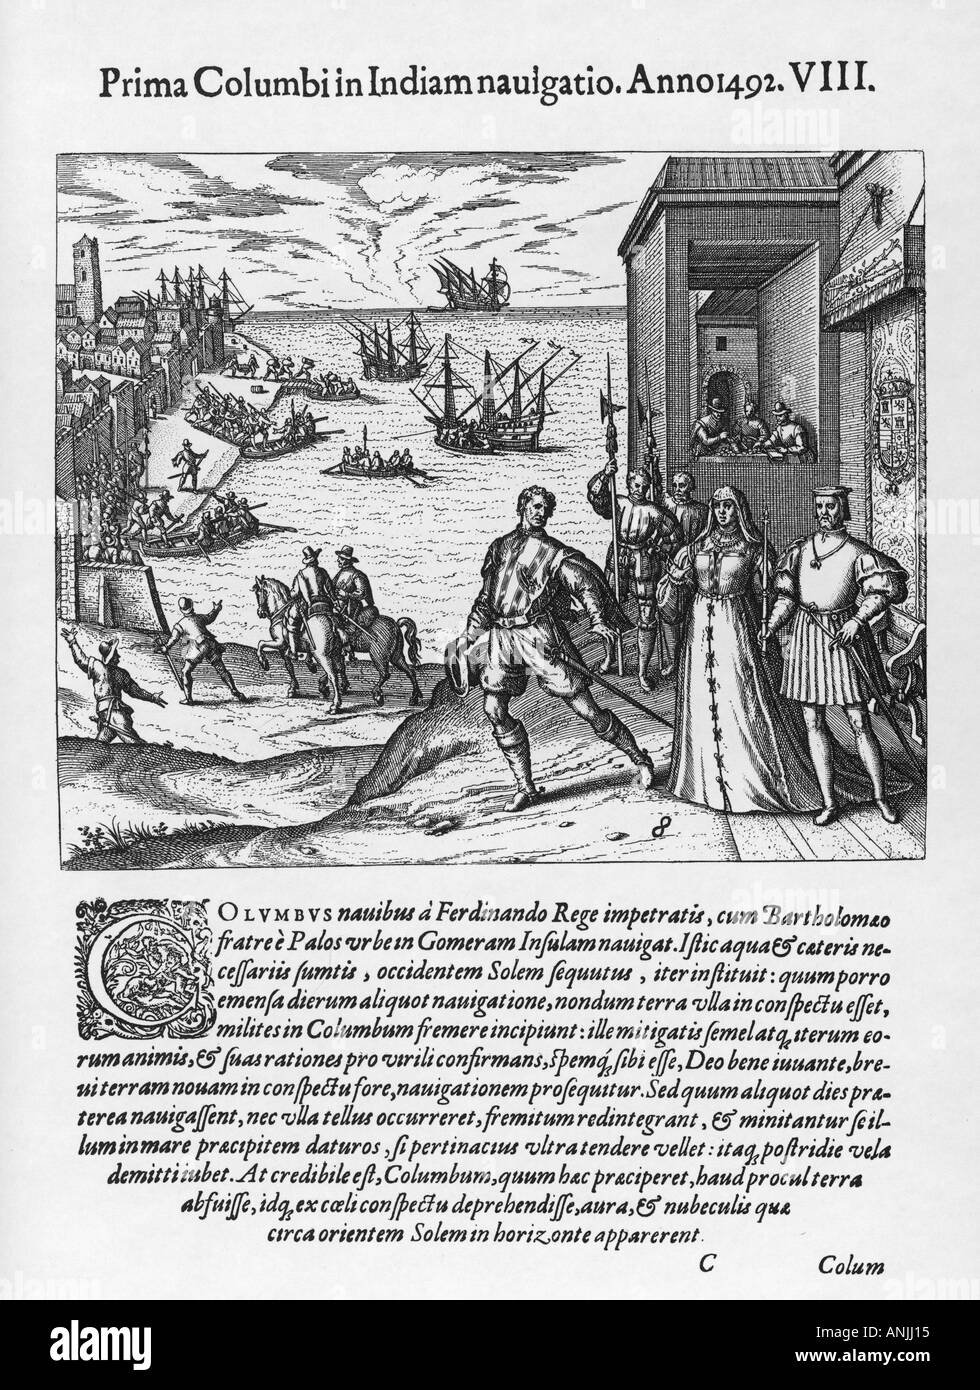 Prima Columbi in Indiam nauigatio. Anno 1492. VIII.
8
COLVMBVS nauibus à Ferdinando Rege impetratis, cum Bartholomæo
fratre è Palos vrbe in Gomeram Insulam nauigat. Istic aqua & cæteris ne-
cessariis sumtis, occidentem Solem sequutus, iter instituit: quum porro
emensa dierum aliquot nauigatione, nondum terra vlla in conspectu esset,
milites in Columbum fremere incipiunt: ille mitigatis semel atq; iterum eo-
rum animis, & suas rationes pro virili confirmans, spemq; sibi esse, Deo bene iuuante, bre-
ui terram nouam in conspectu fore, nauigationem prosequitur. Sed quum aliquot dies præ-
terea nauigassent, nec vlla tellus occurreret, fremitum redintegrant, & minitantur se il-
lum in mare præcipitem daturos, si pertinacius vltra tendere vellet: itaq; postridie vela
demitti iubet. At credibile est, Columbum, quum hæc præciperet, haud procul terra
abfuisse, idq; ex cœli conspectu deprehendisse, aura, & nubeculis quæ
circa orientem Solem in horizonte apparerent.
C Colum
alamy
Image ID: ANJJ15
www.alamy.com